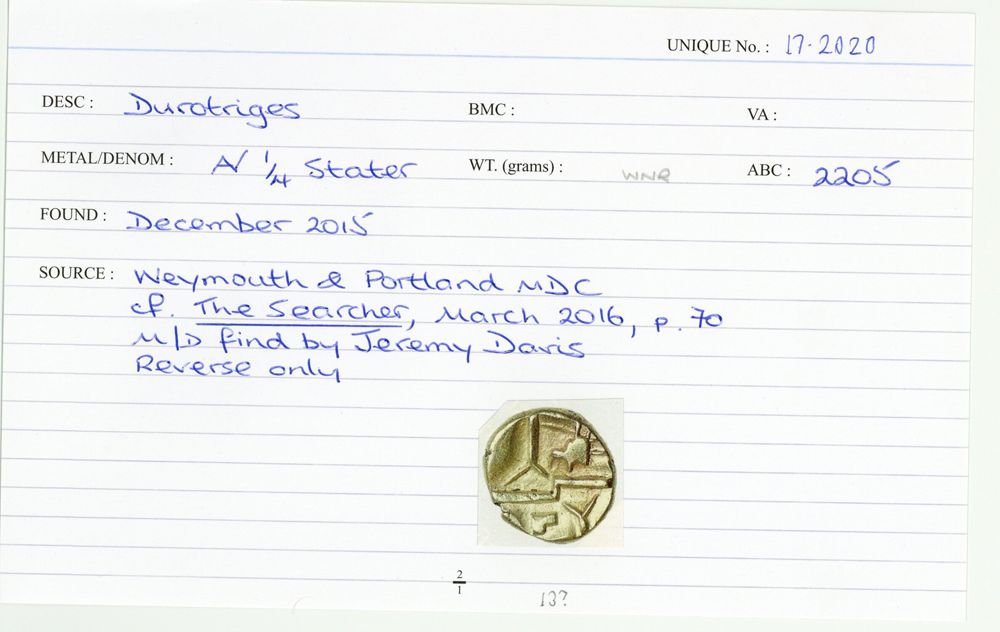 UNIQUE No. : 17-2020
DESC : Durotriges BMC : VA :
METAL/DENOM : A/ 1/4 Stater WT. (grams) : WNR ABC : 2205
FOUND : December 2015
SOURCE : Weymouth & Portland MDC
cf. The Searcher, March 2016, p. 70
M/D find by Jeremy Davis
Reverse only
2/1
13?